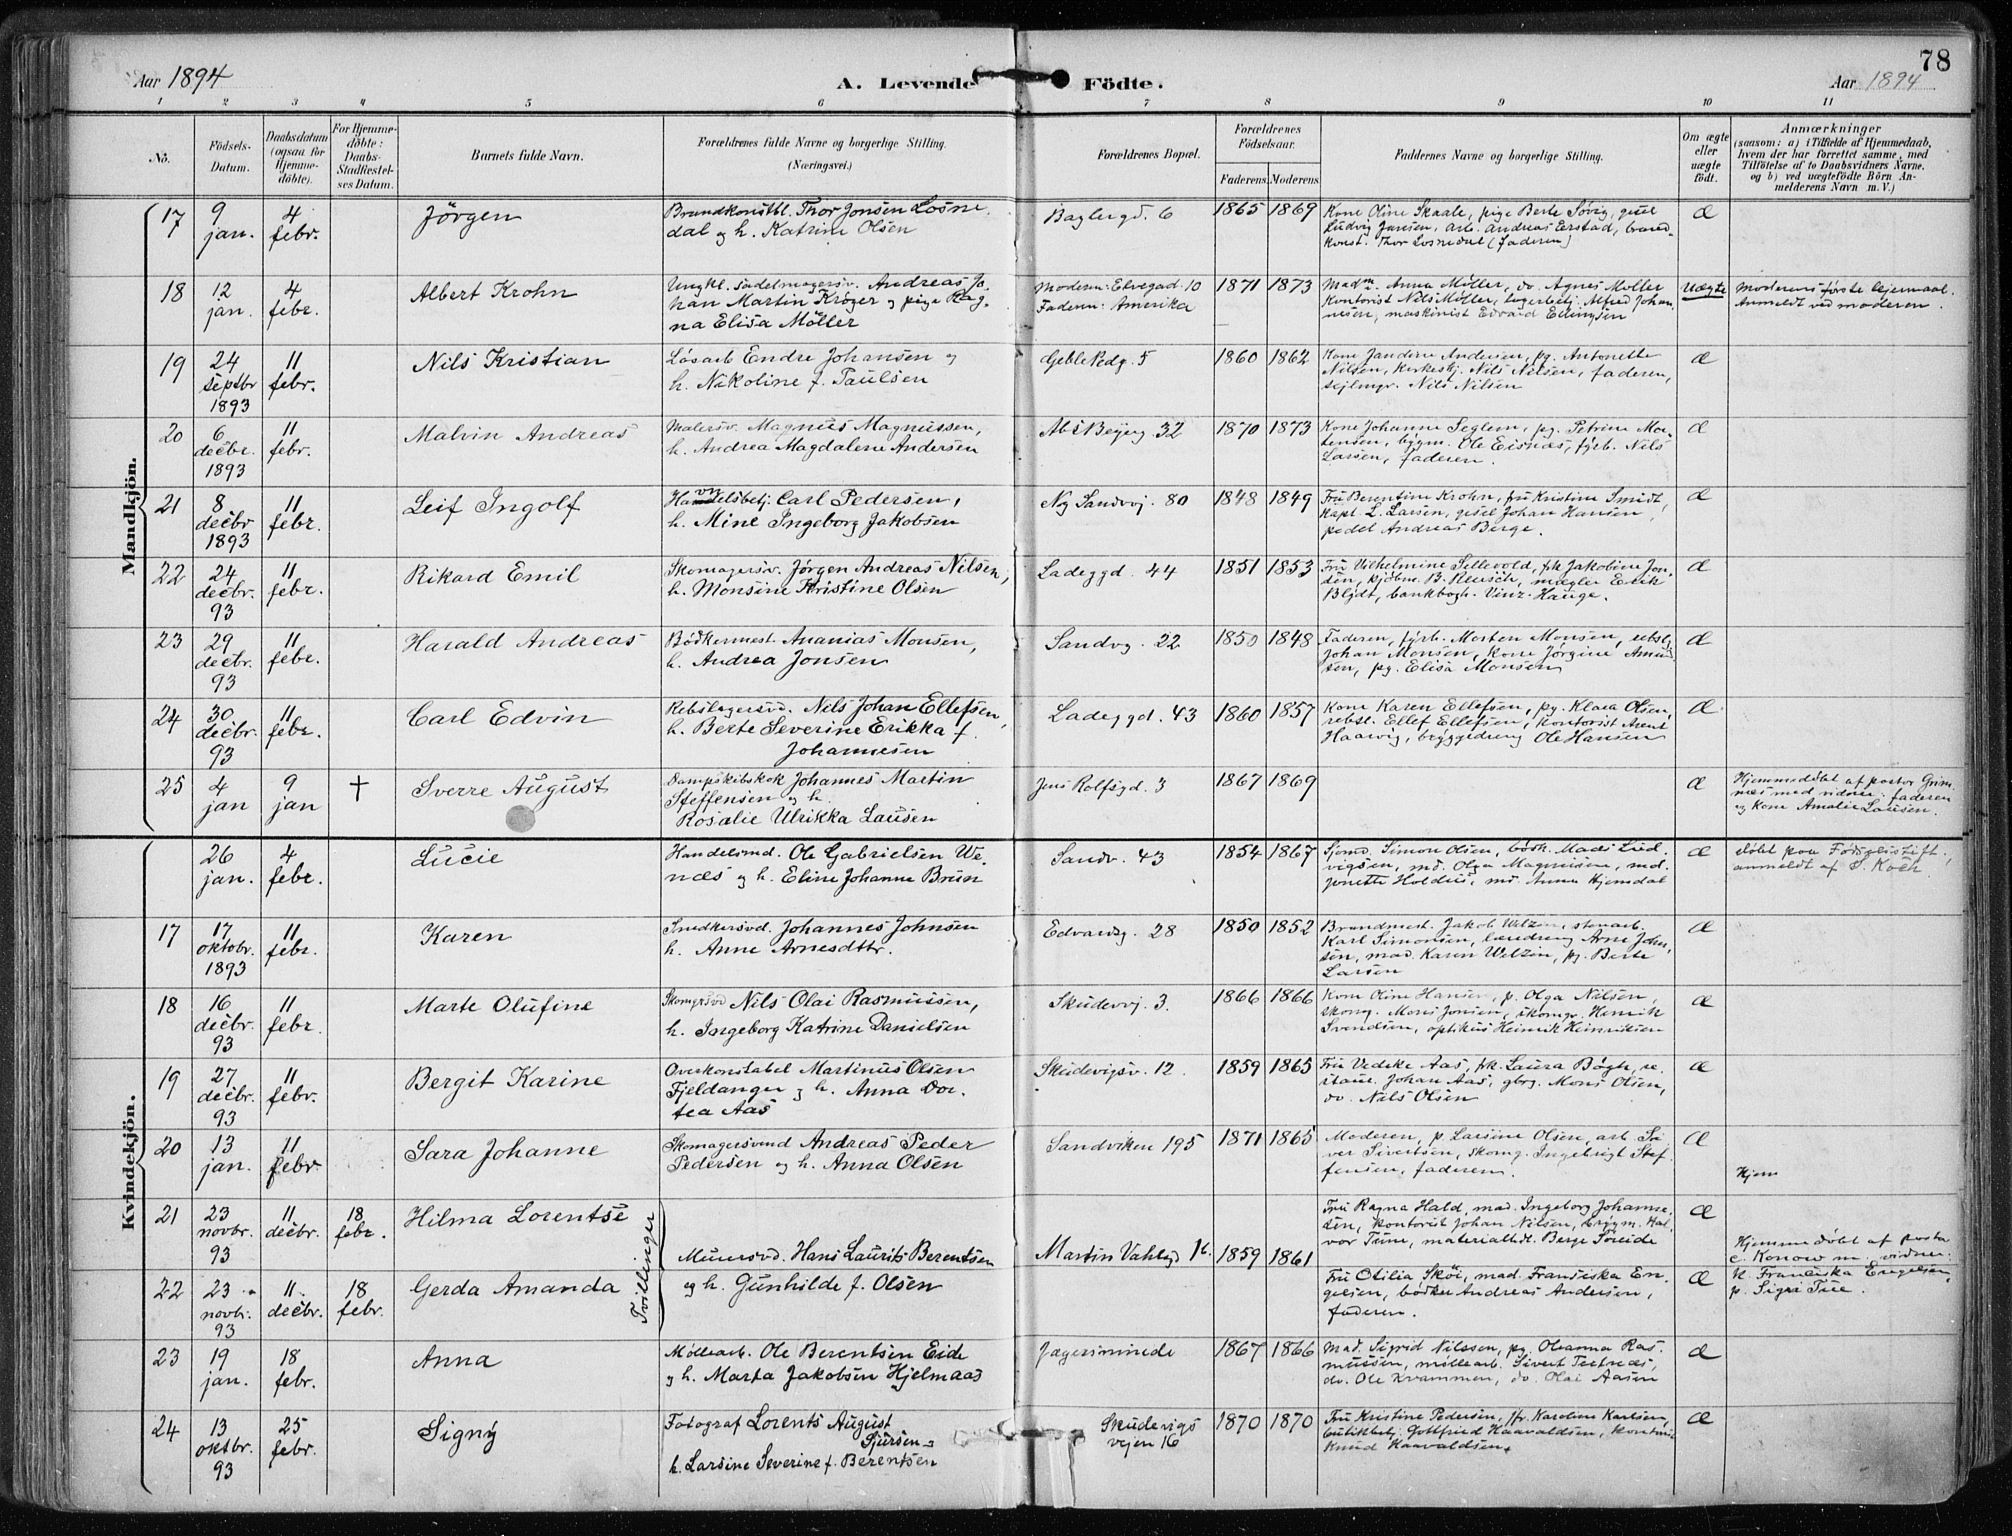 78
Aar 1894
A. Levende Födte.
Aar 1894
1 2 3 4 5 6 7 8 9 10 11
No.
Födsels-
Datum.
Daabsdatum
(ogsaa for
Hjemme-
döbte).
For Hjemme-
döbte:
Daabs-
Stadfæstel-
ses Datum.
Barnets fulde Navn.
Forældrenes fulde Navne og borgerlige Stilling.
(Næringsvei.)
Forældrenes Bopæl.
Forældrenes
Födselsaar.
Faderens. Moderens.
Faddernes Navne og borgerlige Stilling.
Om ægte
eller
uægte
födt.
Anmærkninger
(saasom: a) i Tilfælde af Hjemmedaab,
hvem der har forrettet samme, med
Tilföielse af to Daabsvidners Navne,
og b) ved uægtefödte Börn An-
melderens Navn m. V.)
Mandkjön.
17
9
jan.
4
febr.
Jörgen
Brandkonstbl. Thor Jonsen Losne
dal og h. Katrine Olsen
Baglergd. 6
1865 1869
Kone Oline Skaale, pige Berte Søvig, gesel
Ludvig Jansen, arb. Andreas Erstad, brand-
konst. Thor Losnedal (faderen)
Æ
18
12
jan.
4
febr.
Albert Krohn
Ungkl. sadelmagersv. Andreas Jo
han Martin Krøger og pige Rag-
na Elisa Möller
Moderen: Elvegad. 10
Faderen: Amerika
1871 1873
Madm. Anna Möller, do. Agnes Möller
Kontorist Nils Möller, lagerbetj. Alfred Johan
nesen, maskinist Edvard Ellingsen
Uægte
Moderens første lejermaal.
Anmeldt ved moderen.
19
24
septbr
1893
11
febr.
Nils Kristian
Løsarb Endre Johansen og
h. Nikoline f. Paulsen
Geble Pedg. 5
1860 1862
Kone Janderne Andersen, pg. Antonette
Nilsen, kirkebtj. Nils Nilsen, faderen,
sejlmgr. Nils Nilsen
Æ
20
6
decbr.
1893
11
febr.
Malvin Andreas
Malersv. Magnus Magnussen,
h. Andrea Magdalene Andersen
32
1870 1873
Kone Johanne Seglem, pg. Petrine Mor-
tensen, bygm. Ole Eisnæs, fyrb. Nils
Larsen, faderen.
Æ
21
8
decbr
1893
11
febr.
Leif Ingolf
Handelsbetj. Carl Pedersen,
h. Mine Ingeborg Jakobsen
Ny Sandvvj. 80
1848 1849
Fru Berentine Krohn, fru Kristine Smidt,
Kapt. L. Larsen, gesel Johan Hansen,
pedel Andreas Berge.
Æ
22
24
decbr.
93
11
febr.
Rikard Emil
Skomagersv. Jørgen Andreas Nilsen,
h. Monsine Kristine Olsen
Ladeggd. 44
1851 1853
Fru Vilhelmine Sellevold, frk Jakobine Jon-
sen, kjöbm. B. Reusch, mægler Erik
Blydt, bankbogh. Vinz. Hauge.
Æ
23
29
decbr.
93
11
febr.
Harald Andreas
Bödkermest. Ananias Monsen,
h. Andrea Jonsen
Sandvg. 22
1850 1848
Faderen, fyrb. Morten Monsen, rebslg
Johan Monsen, kone Jørgine Amund
sen, pg. Elisa Monsen
Æ
24
30
decbr.
93
11
febr.
Carl Edvin
Rebslagersvd. Nils Johan Ellefsen,
h. Berte Severine Erikka f.
Johannesen
Ladeggd. 43
1860 1857
Kone Karen Ellefsen, pg. Klara Olsen,
rebsl. Ellef Ellefsen, kontorist Arent
Haawig, bryggedreng Ole Hansen
Æ
25
4
jan
9
jan
†
Sverre August
Dampskibskok Johannes Martin
Steffensen og h.
Rosalie Ulrikka Larsen
Jens Rolfsgd. 3
1867 1869
Æ
Hjemmedöbt af pastor Grim
næs med vidner: faderen
og kone Amalie Larsen.
Kvindekjön.
26
jan.
4
febr.
Lucie
Handelsmd. Ole Gabrielsen We-
næs og h. Eline Johanne Brun
Sandv. 43
1854 1867
Sjömd. Simon Olsen, Mads Lud-
vigsen, md. Olga Magnussen, md.
Jonette Holdus, md. Anna Hjemdal
Æ
döbt paa Födselsstift.,
anmeldt af S. Koch.
17
17
oktobr.
1893
11
febr.
Karen
Snedkersvd. Johannes Johnsen
h. Anne Arnesdttr.
Edvardsg. 28
1850 1852
Brandmest. Jakob Welzin, stenarb.
Karl Simonsen, læredreng Arne John
sen, mad. Karen Welzin, pg. Berte
Larsen
Æ
18
16
decbr.
93
11
febr.
Marte Olufine
Skomgrsvd Nils Olai Rasmussen,
h. Ingeborg Katrine Danielsen
Skudevvj. 3.
1866 1866
Kone Oline Hansen, p. Olga Nilsen,
skomg. Mons Jonsen, skomgr. Henrik
Svendsen, optikus Heinrik Heinriksen
Æ
19
27
decbr.
93
11
febr.
Bergit Karine
Overkonstabel Martinus Olsen
Fjeldanger og h. Anna Dor-
tea Aas
Skudevigsv. 12.
1859 1865
Fru Vedeke Aas, frk. Laura Bögh, re-
staur. Johan Aas, gbrg. Mons Olsen,
do. Nils Olsen
Æ
20
13
jan.
11
febr.
Sara Johanne
Skomagersvend Andreas Peder
Pedersen og h. Anna Olsen
Sandviken 195
1871 1865
Moderen, p. Larsine Olsen, arb. Si
ver Sivertsen, skomg. Ingebrigt Stef
fensen, faderen.
Æ
Hjem
21
23
novbr.
93
11
decbr.
18
febr.
Hilma Lorentse
Tvillinger
Murersvd. Hans Laurits Berentsen
og h. Gunhilde f. Olsen
Martin Vahlsgd 16.
1859 1861
Fru Ragna Hald, mad. Ingeborg Johanne-
sen, kontorist Johan Nilsen, bygm. Hal
vor Tune, materialhdl. Berge Soreide
Æ
Hjemmedöbt af pastor
C. Konow m. vidner:
K. Franciska Engelsen,
p. Signe Tue.
22
23
novbr.
93
11
decbr.
18
febr.
Gerda Amanda
Fru Otilia Skøi, mad. Fransiska En-
gelsen, bödker Andreas Andersen,
faderen.
Æ
23
19
jan.
18
febr.
Anna
Møllearb. Ole Berentsen Eide
og h. Marta Jakobsen Hjelmaas
Jægersminde
1867 1866
Mad. Sigrid Nilssen, pg. Oleanna Ras-
mussen, møllearb. Sivert Tertnæs,
do. Ole Kvammen, do. Olai Aasen
Æ
24
13
oktbr.
93
25
febr.
Signy
Fotograf Lorents August
Sjursen
h. Larsine Severine f. Berentsen
Skudevigs
vejen 16
1870 1870
Fru Kristine Pedersen, fr. Karoline Karlsen,
butikbetj. Gottfried Haavaldsen, kontorist
Knud Haavaldsen.
Æ